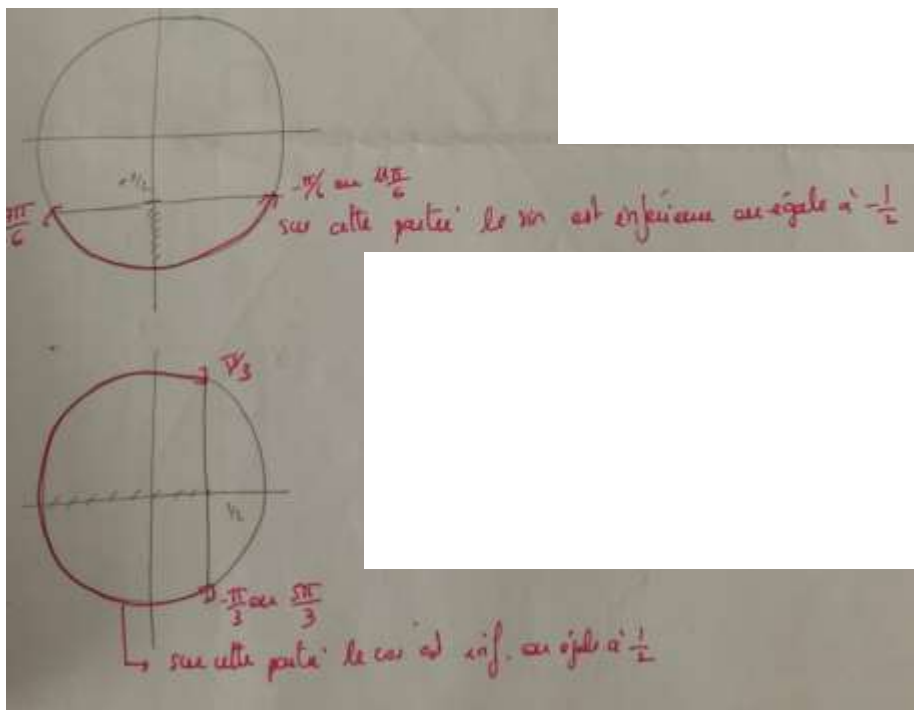 -1/2
7π/6
-π/6 ou 11π/6
sur cette partie le sin est inférieure ou égale à -1/2
π/3
1/2
-π/3 ou 5π/3
↳ sur cette partie le cos est inf. ou égale à 1/2